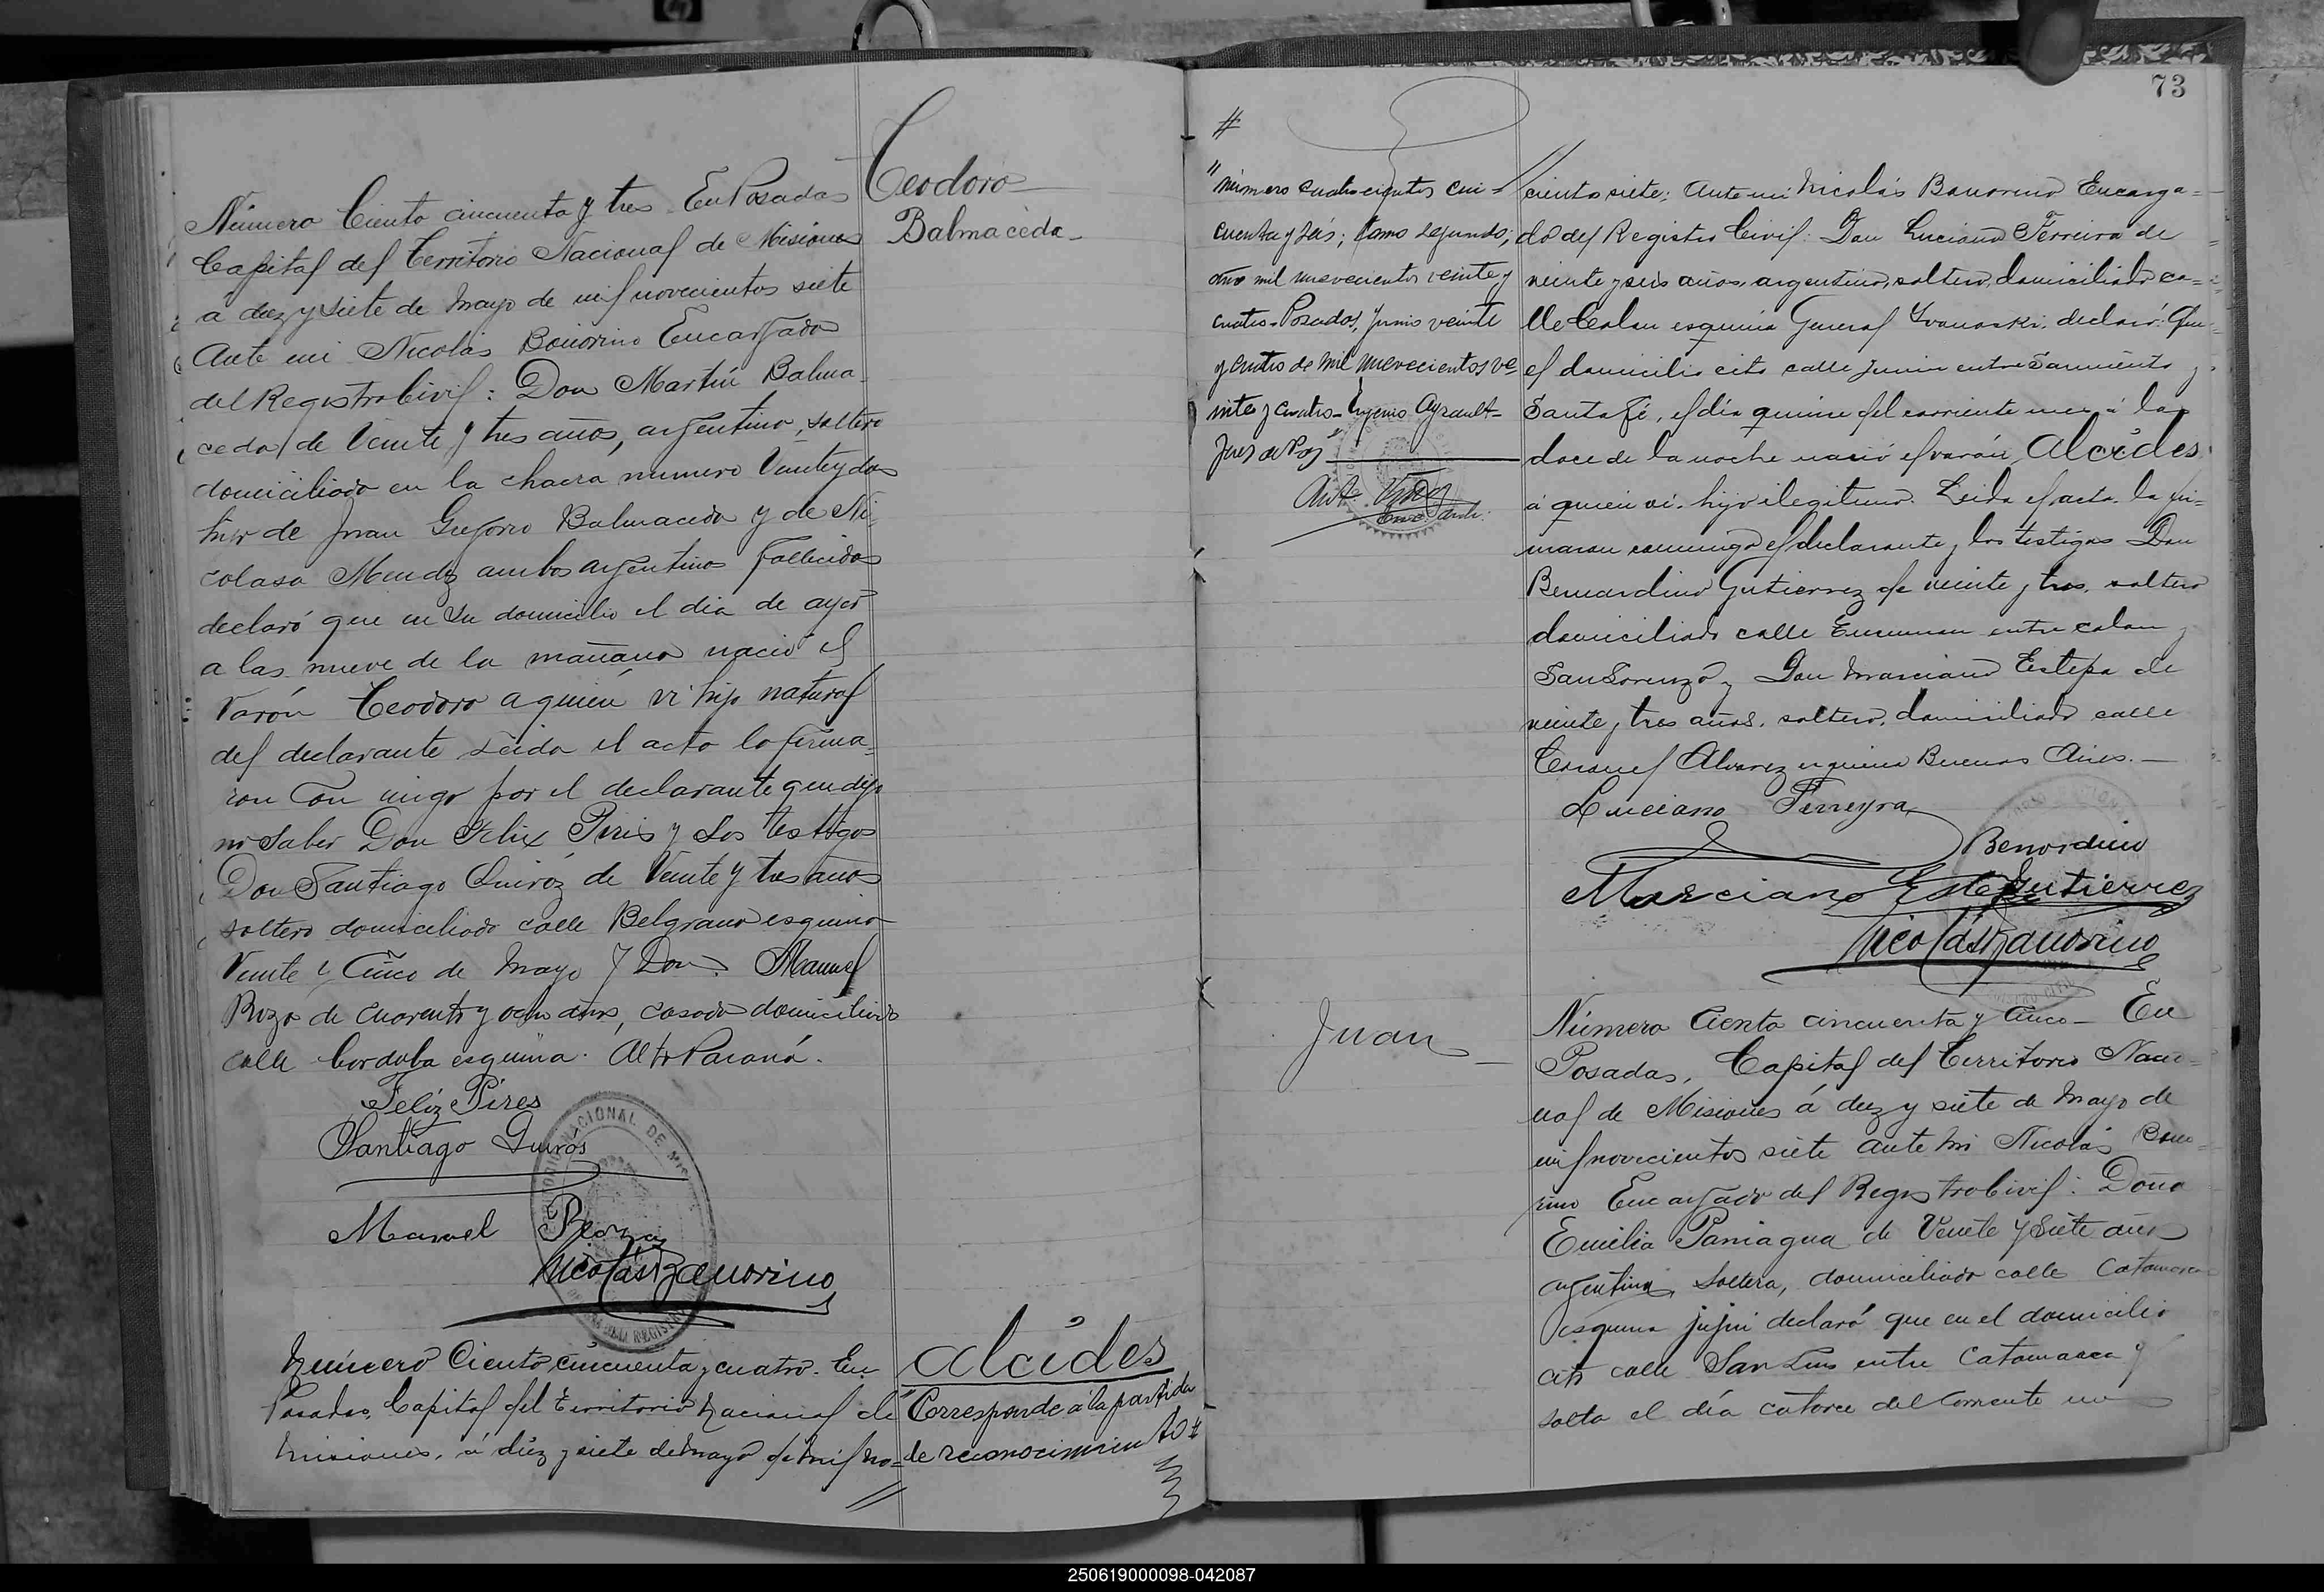 Teodoro
Balmaceda
Número Ciento cincuenta y tres En Posadas
Capital del Territorio Nacional de Misiones
á diez y siete de Mayo de mil novecientos siete
Ante mi Nicolás Bonorino Encargado
del Registro Civil: Don Martín Balma
ceda de Veinte y tres años, argentino, soltero
domiciliado en la chacra numero Veinte y dos
hijo de Juan Gregorio Balmaceda y de Ni
colasa Mendez ambos argentinos fallecidos
declaró que en su domicilio el dia de ayer
a las nueve de la mañana nació el
Varón Teodoro a quien vi hijo natural
del declarante Leida el acta la firma
ron con migo por el declarante que dijo
no saber Don Felix Piris y los testigos
Don Santiago Quiróz de Veinte y tres años
soltero domiciliado calle Belgrano esquina
Veinte y Cinco de Mayo y Don Manuel
de cuarenta y ocho años, casado domiciliado
calle Cordoba esquina Alto Paraná.
Feliz Píres
Santiago Quirós
Manuel
Nicolás Bonorino
Número Ciento cincuenta y cuatro. En
Posadas, Capital del Territorio Nacional de
Misiones, á diez y siete de Mayo de mil no=
Alcides
Corresponde á la partida
de reconocimiento #
73
#
"número cuatrocientos cin
cuenta y seis; tomo segundo;
año mil novecientos veinte y
cuatro. Posadas, Junio veinte
y cuatro de mil novecientos ve
inte y cuatro. Ayrault
Juez de Paz
cientos siete; Ante mi Nicolás Bonorino Encarga=
do del Registro Civil: Don Luciano Ferreira de
veinte y seis años, argentino, soltero, domiciliado ca=
lle Colon esquina General declaró: Que
el domicilio cito calle Junin entre Sarmiento y
Santa Fé, el día quince del corriente mes á las
doce de la noche nació el varón, Alcides,
á quien vi. hijo ilegitimo. Leida el acta la fir=
maron conmigo el declarante y los testigos Don
Bernardino Gutierrez de veinte y tres, soltero
domiciliado calle Tucuman entre Colon y
San Lorenzo y Don Marciano Estepa de
veinte y tres años, soltero, domiciliado calle
Coronel Alvarez esquina Buenos Aires.
Luciano Ferreyra
Bernardino
Gutierrez
Marciano Estepa
Nicolás Bonorino
Juan
Número Ciento cincuenta y cinco En
Posadas, Capital del Territorio Nacio=
nal de Misiones á diez y siete de Mayo de
mil novecientos siete ante mi Nicolás Bono
rino Encargado del Registro Civil: Doña
Emilia Paniagua de Veinte y Siete años
argentina, Soltera, domiciliada calle Catamarca
esquina Jujui declaró que en el domicilio
cito calle San Luis entre Catamarca y
Salta el día catorce del corriente
250619000098-042087